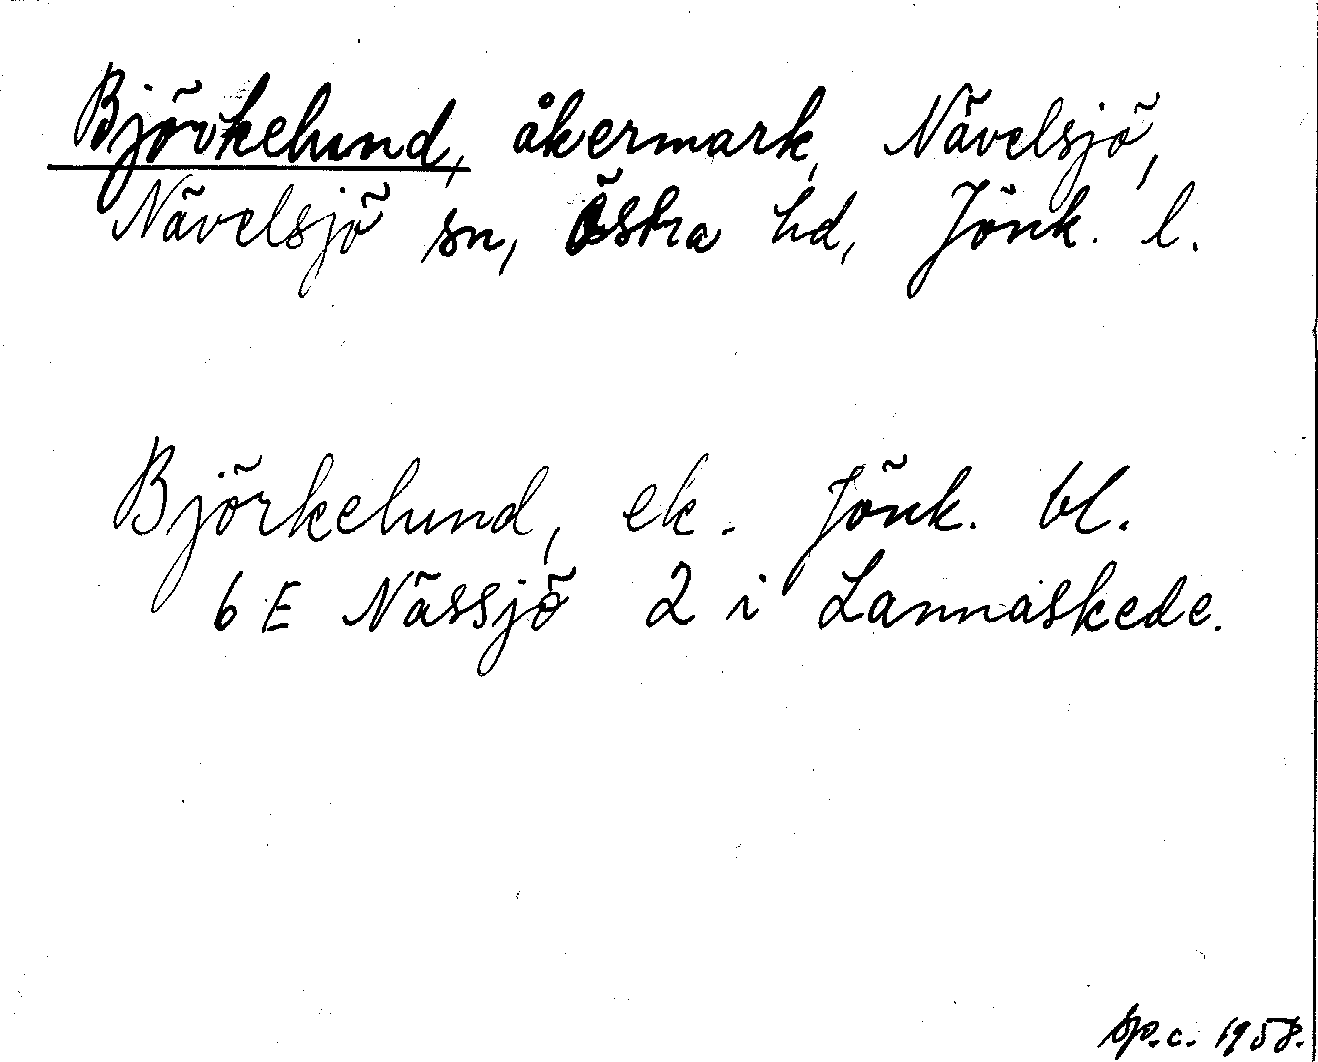 Björkelund, åkermark, Nävelsjö,
Nävelsjö sn, Östra hd, Jönk. l.
Björkelund, ek. Jönk. bl.
6 E Nässjö 2 i Lannaskede.
Sp.c. 1958.